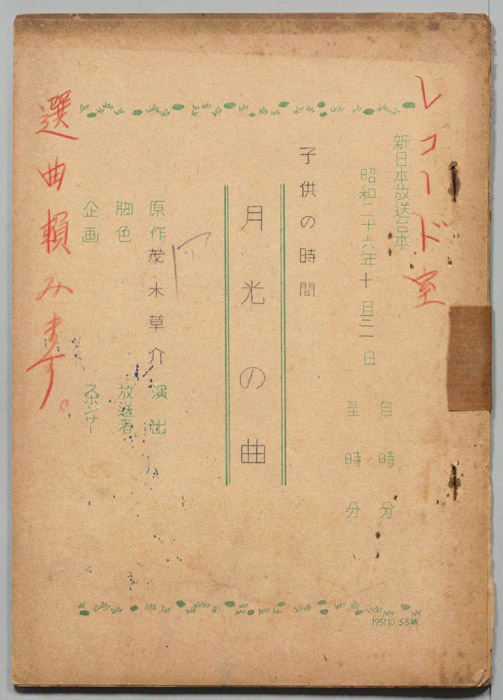 レコード室
新日本放送台本
昭和二十六年十月三一日
自 時 分
至 時 分
子供の時間
月光の曲
原作 茂木草介 演出
脚色 放送者
企画 スポンサー
選曲頼みます。